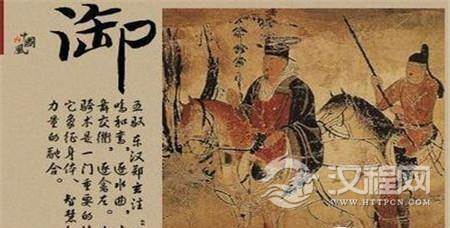 中國風
御
五驭 东汉郑玄注：“
鸣和鸾，逐水曲，
舞交衢，逐禽左。
骑术是一门重要的
它象征身体、智慧
力量的融合。
汉程网
WWW.HTTPCN.COM